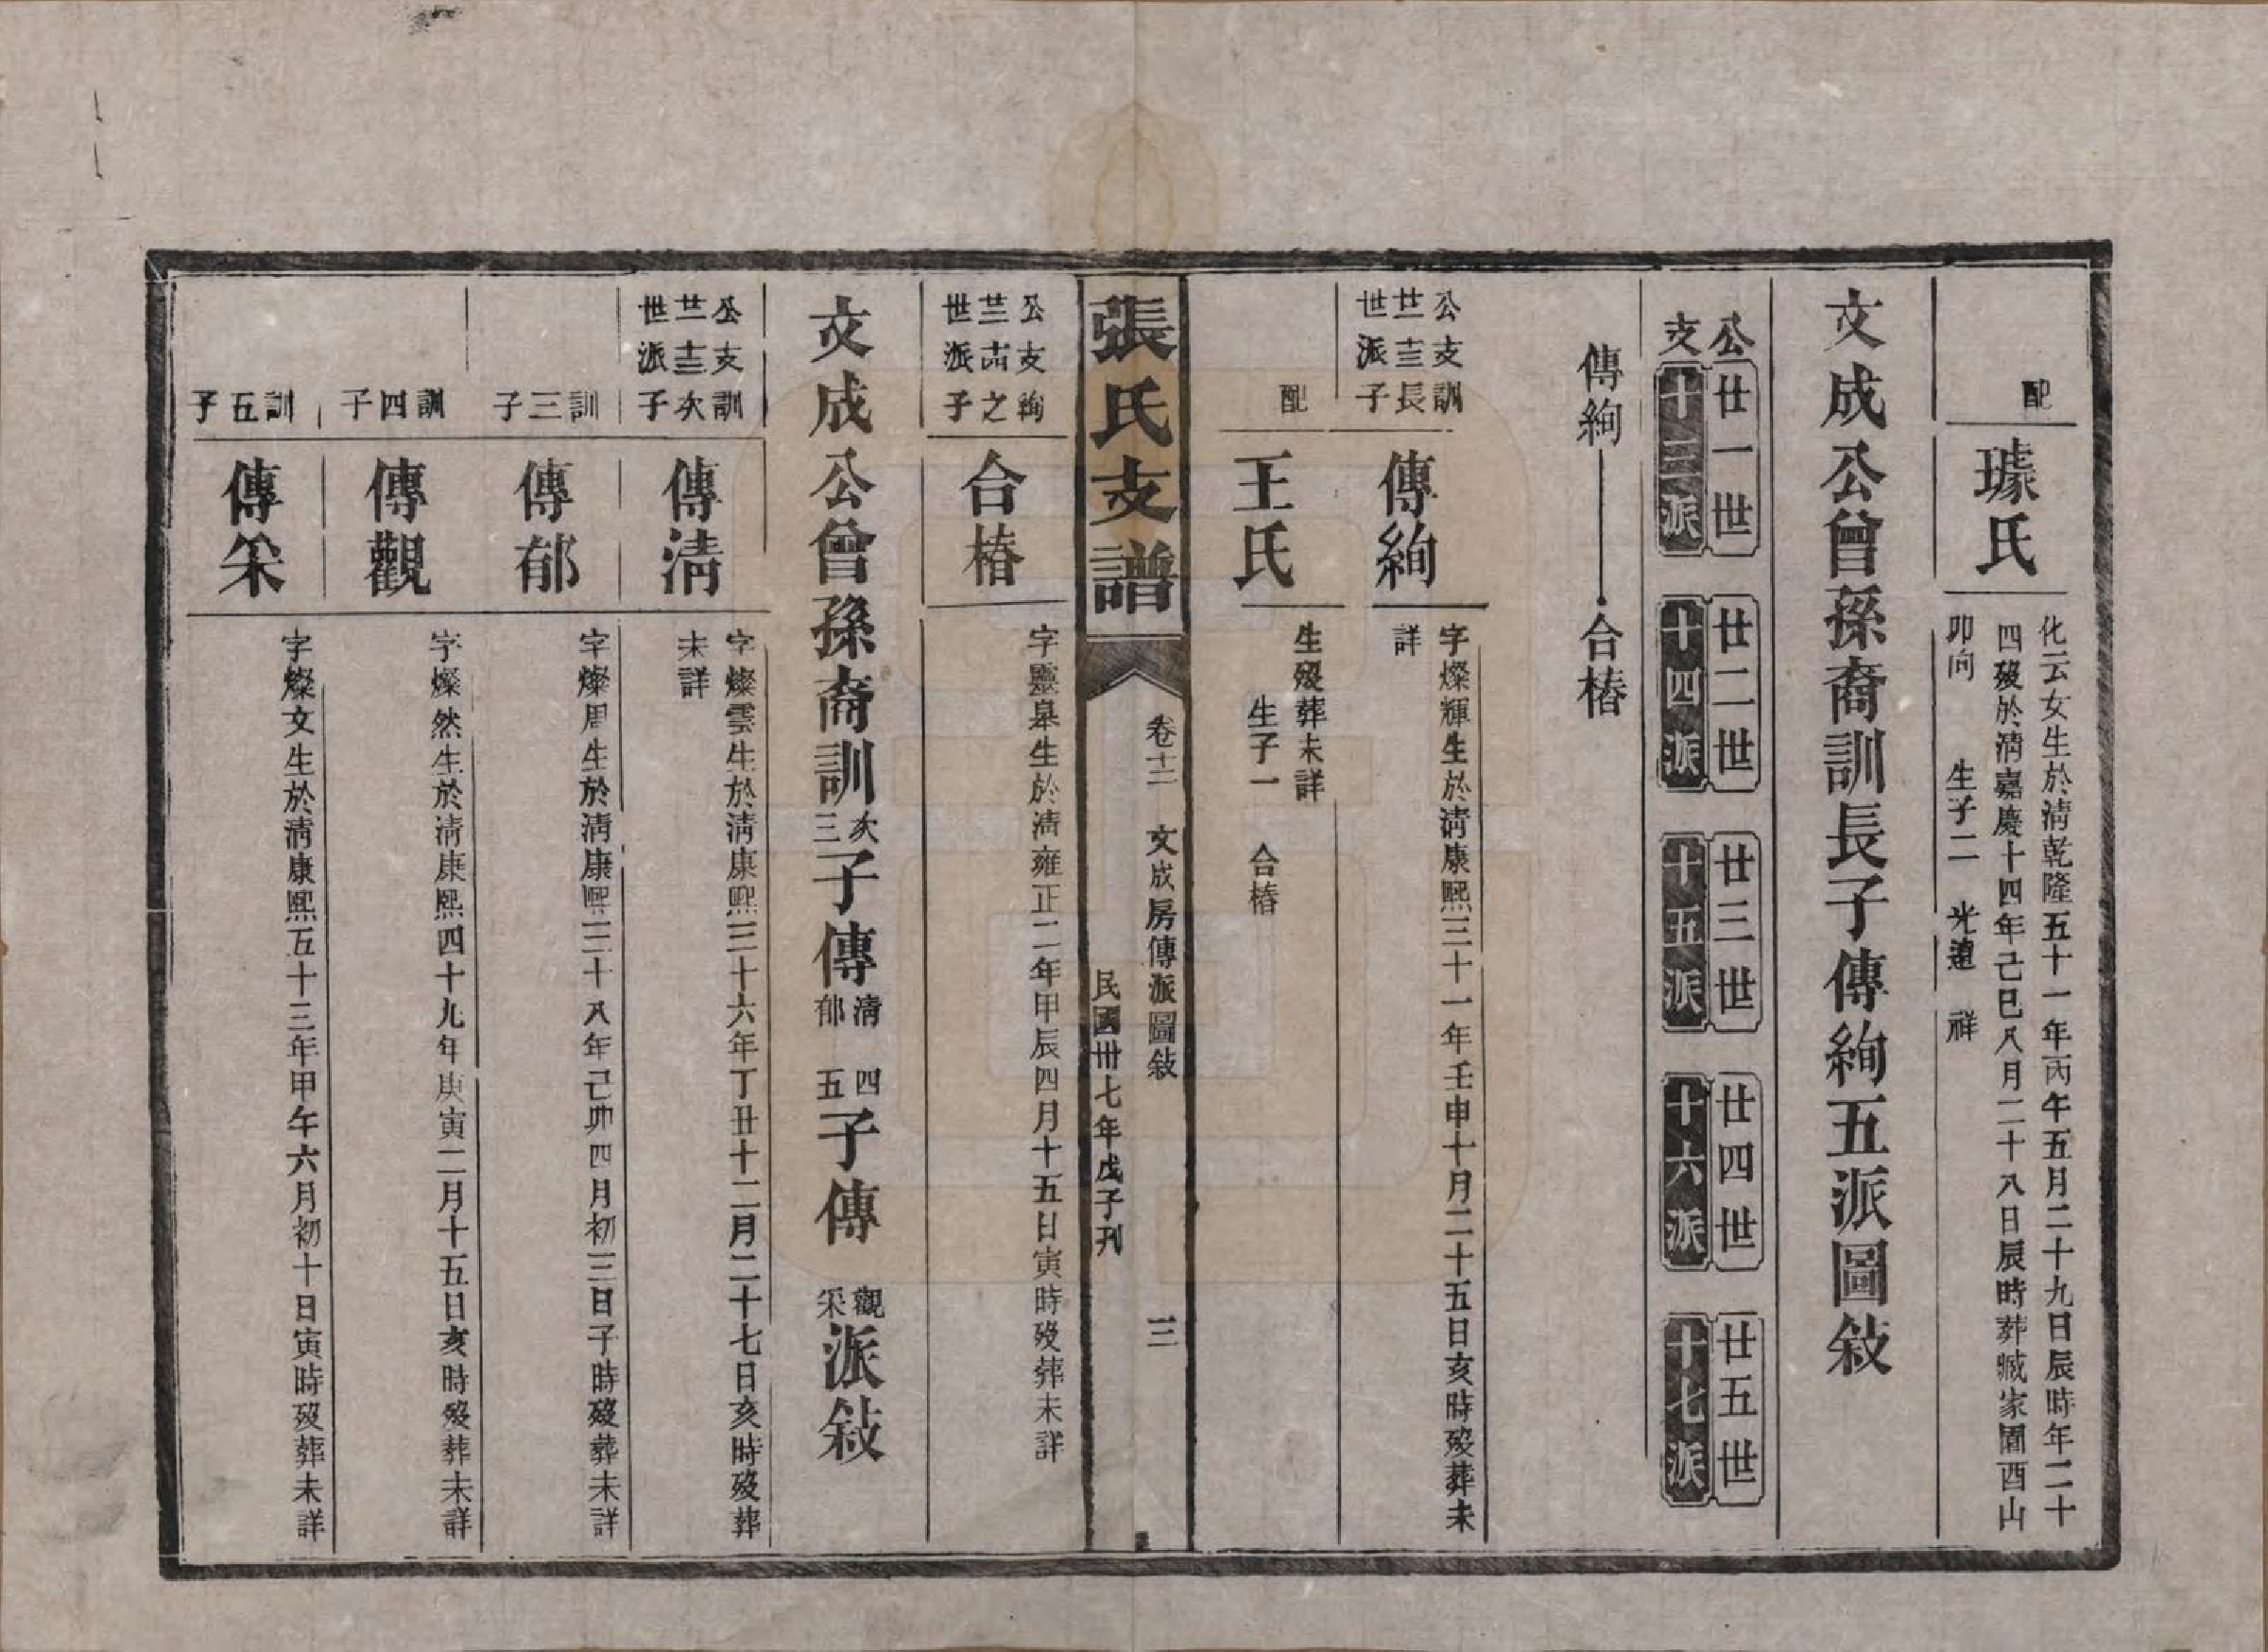 配
璩氏
化云女生於淸乾隆五十一年丙午五月二十九日辰時年二十
四歿於淸嘉慶十四年己巳八月二十八日辰時葬臧家園酉山
卯向　生子二　光遠　祥
文成公曾孫裔訓長子傳絢五派圖敍
公支
廿一世　廿二世　廿三世　廿四世　廿五世
十三派　十四派　十五派　十六派　十七派
傳絢　合椿
公支訓
廿一十三長
世派子
傳絢
字燦輝生於淸康熙三十一年壬申十月二十五日亥時歿葬未
詳
配
王氏
生歿葬未詳
生子一　合椿
張氏支譜
卷十二　文成房傳派圖敍　三
民國卅七年戊子刊
公支絢
廿二十四之
世派子
合椿
字靈皋生於淸雍正二年甲辰四月十五日寅時歿葬未詳
文成公曾孫裔訓次三子傳淸郁四五子傳觀采派敍
公支訓
廿一十三次
世派子
傳淸
字燦雲生於淸康熙三十六年丁丑十二月二十七日亥時歿葬
未詳
訓三子
傳郁
字燦周生於淸康熙三十八年己卯四月初三日子時歿葬未詳
訓四子
傳觀
字燦然生於淸康熙四十九年庚寅二月十五日亥時歿葬未詳
訓五子
傳采
字燦文生於淸康熙五十三年甲午六月初十日寅時歿葬未詳